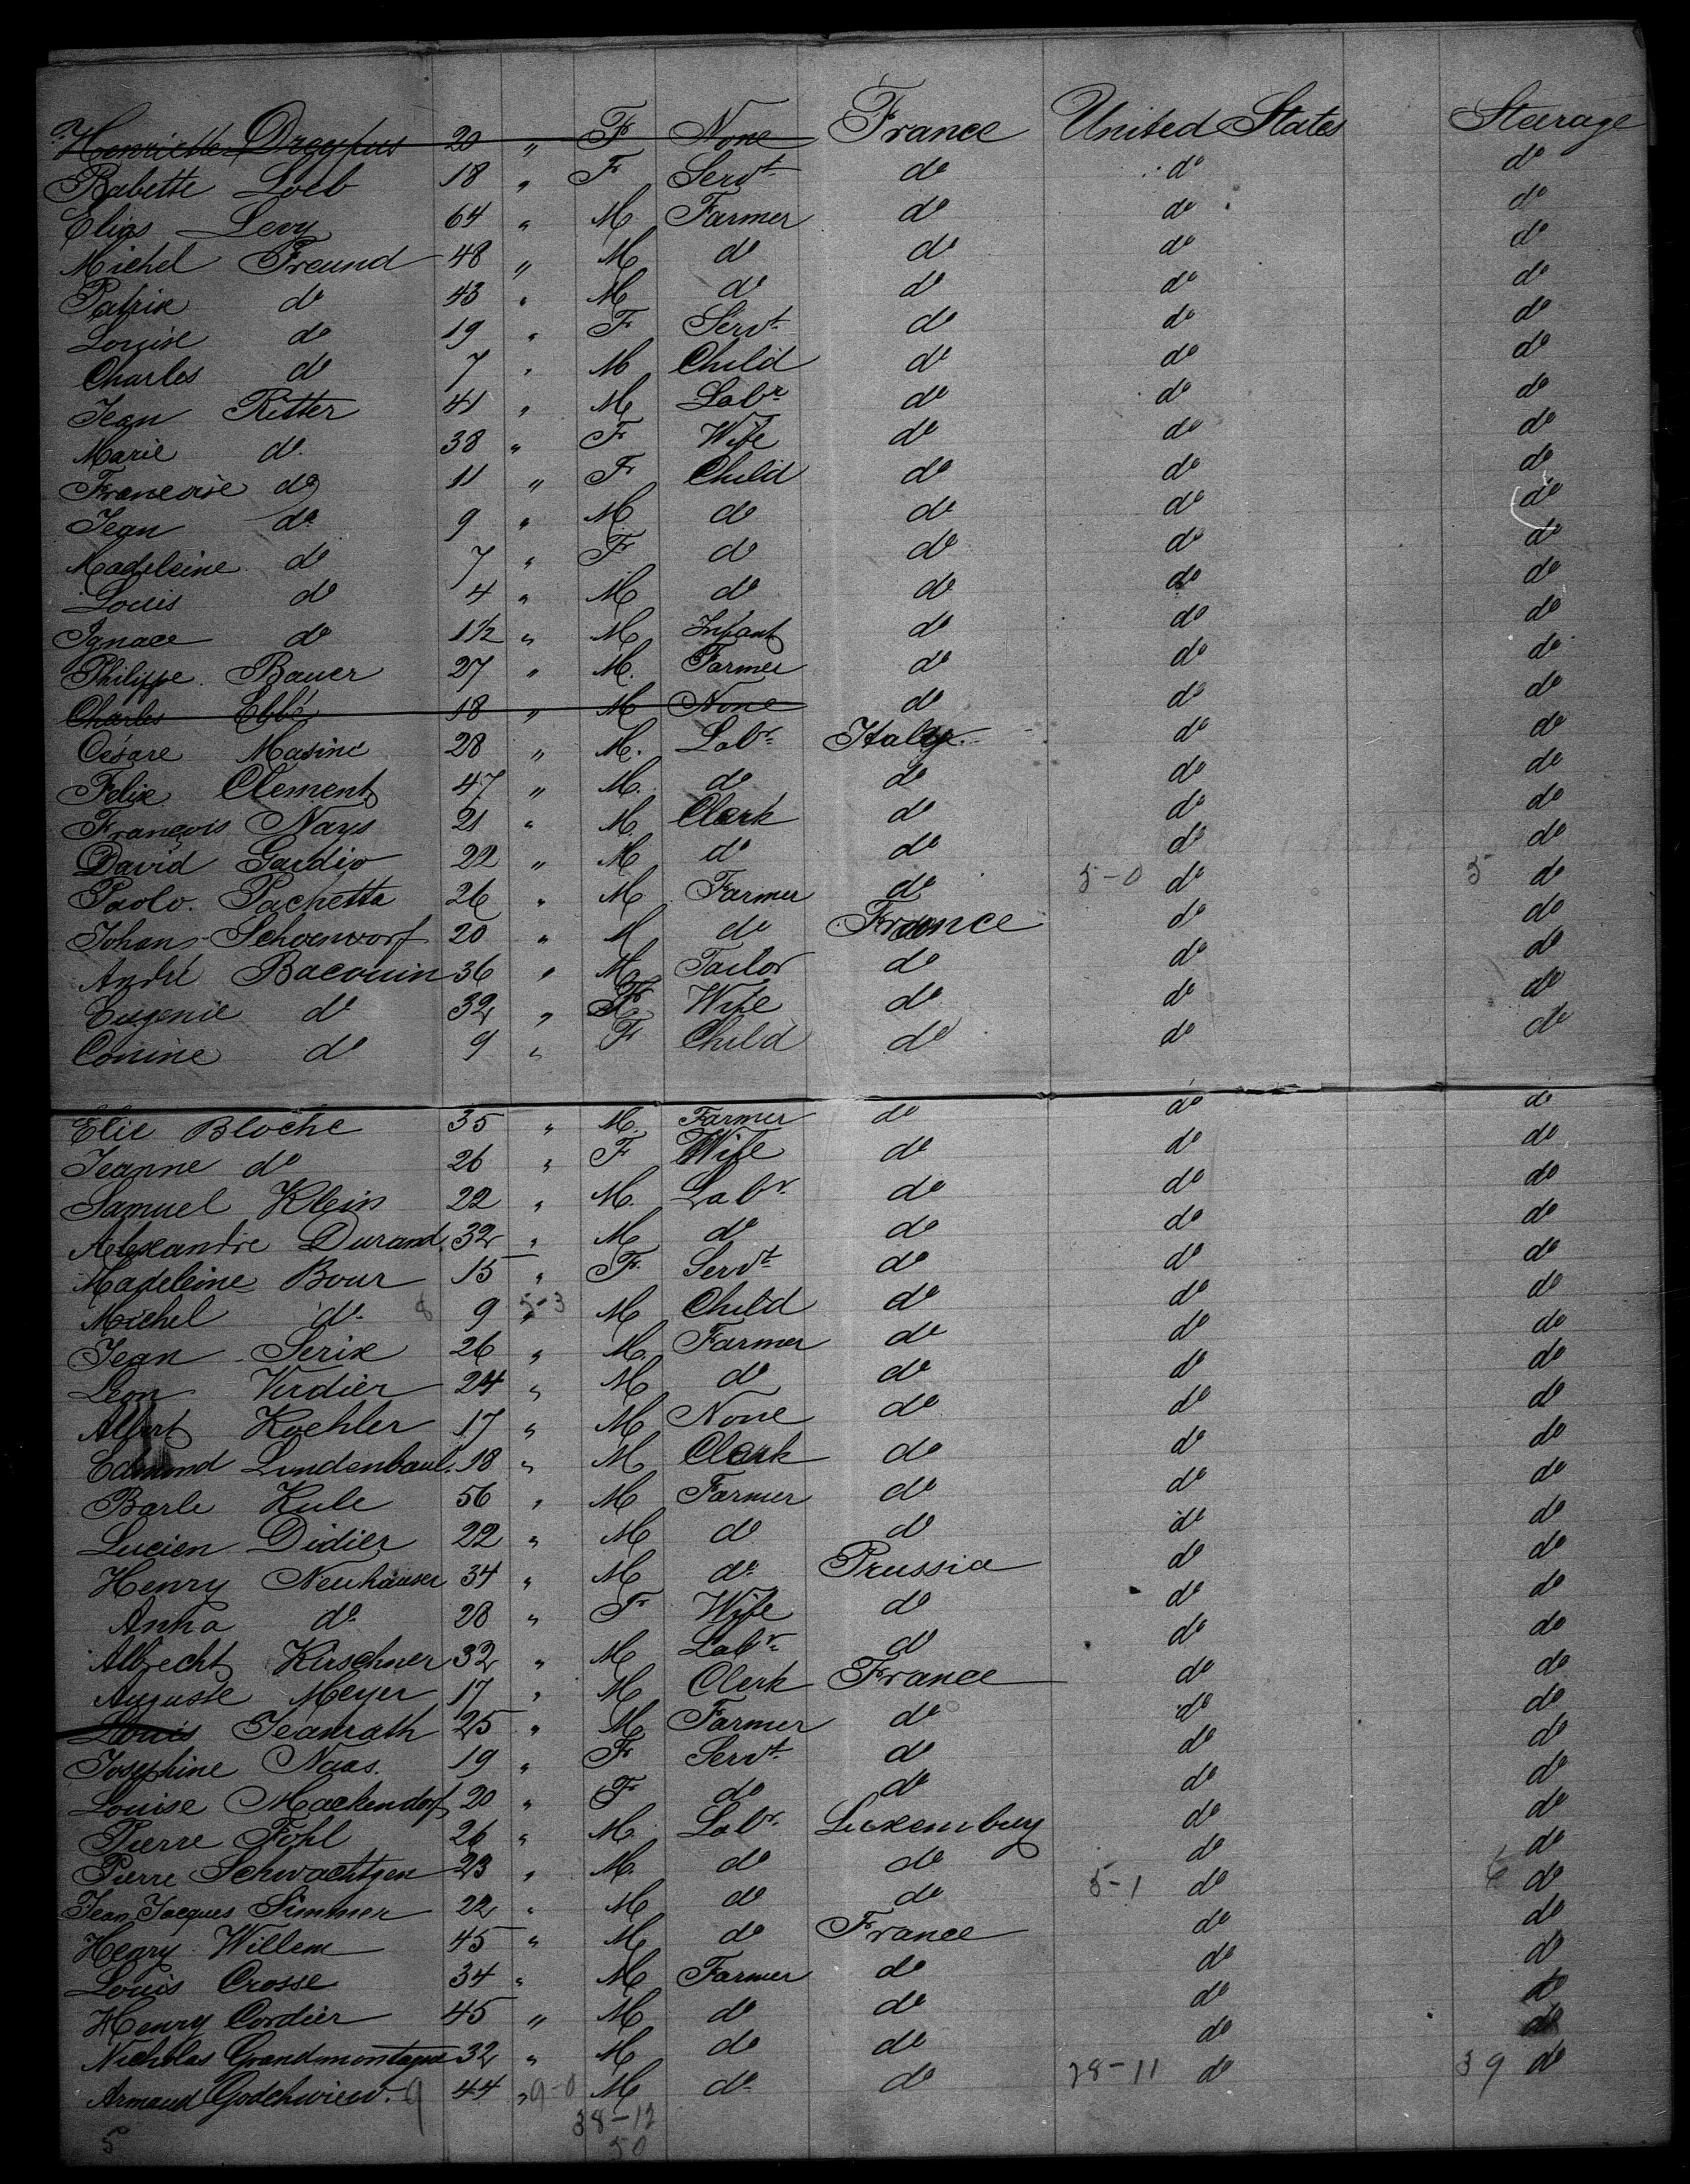 Henriette Dreyfus 20 " F None France United States Steerage
Babette Loeb 18 " F Servt do do do
Elias Levy 64 " M Farmer do do do
Michel Freund 48 " M do do do do
Patrix do 43 " M do do do do
Louise do 19 " F Servt do do do
Charles do 7 " M Child do do do
Jean Ritter 41 " M Labr do do do
Marie do 38 " F Wife do do do
Francoise do 11 " F Child do do do
Jean do 9 " M do do do do
Madeleine do 7 " F do do do do
Louis do 4 " M do do do do
Ignace do 1½ " M Infant do do do
Philippe Bauer 27 " M. Farmer do do do
Charles Ebbé 18 " M None do do do
Césare Masini 28 " M. Labr Italy do do
Felix Clement 47 " M. do do do do
François Nays 21 " M. Clerk do do do
David Gardio 22 " M do do do do
Paolo Pachetta 26 " M Farmer do 5-0 do 5 do
Johans Schoenworf 20 " M do France do do
André Bacouin 36 " M Tailor do do do
Eugenie do 32 " F Wife do do do
Conine do 9 " F Child do do do
Elie Bloche 35 " M. Farmer do do do
Jeanne do 26 " F Wife do do do
Samuel Klein 22 " M. Labr do do do
Alexandre Durand 32 " M do do do do
Madeleine Bour 15 " F. Servt do do do
Michel do 8 9 5-3 " M Child do do do
Jean Serix 26 " M. Farmer do do do
Leon Verdier 24 " M do do do do
Albert Koehler 17 " M None do do do
Edmond Lindenbaul. 18 " M Clerk do do do
Barle Kule 56 " M Farmer do do do
Lucien Didier 22 " M do do do do
Henry Neuhäuser 34 " M do Prussia do do
Anna do 28 " F Wife do do do
Albrecht Kirschner 32 " M Labr do do do
Auguste Meyer 17 " M Clerk France do do
Louis Jeanrath 25 " M Farmer do do do
Josephine Naas. 19 " F Servt do do do
Louise Mackendorf 20 " F do do do do
Pierre Fohl 26 " M Labr Luxemburg do do
Pierre Schwachtgen 23 " M do do do do
Jean Jacques Simmer 22 " M do do 5-1 do 6 do
Henry Willem 45 " M do France do do
Louis Crosse 34 " M Farmer do do do
Henry Cordier 45 " M do do do do
Nicholas Grandmontagne 32 " M do do do do
Armand 9 44 " 9-0 M do do 28-11 do 39 do
38-12
5 50